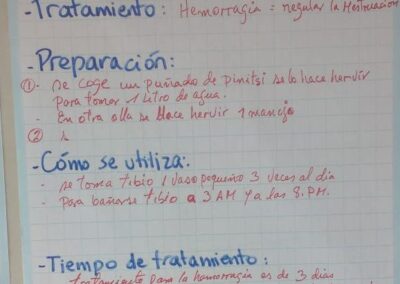 -Tratamiento: Hemorragia = regular la Mestruación
-Preparación:
①- se coge un puñado de pinitsi se lo hace hervir
para tomar 1 litro de agua.
- En otra olla se Hace hervir 1 manojo
②
-Cómo se utiliza:
- se toma tibio 1 vaso pequeño 3 veces al día
- Para bañarse tibio a 3 AM y a las 8. P.M.
-Tiempo de tratamiento:
tratamiento para la hemorragia es de 3 días